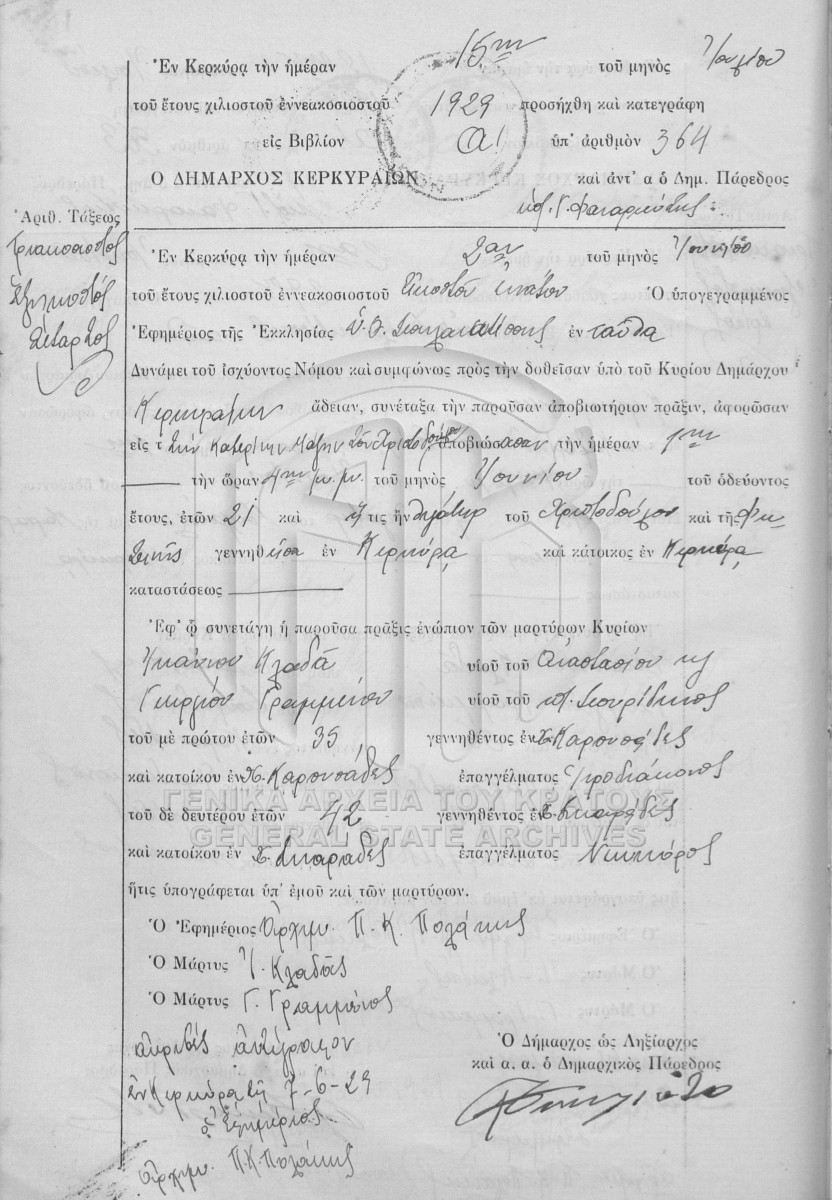 Ἐν Κερκύρᾳ τὴν ἡμέραν 15ην τοῦ μηνὸς Ἰουλίου
τοῦ ἔτους χιλιοστοῦ ἐννεακοσιοστοῦ 1929 προσήχθη καὶ κατεγράφη
εἰς Βιβλίον Α1 ὑπ' ἀριθμὸν 364
Ο ΔΗΜΑΡΧΟΣ ΚΕΡΚΥΡΑΙΩΝ καὶ ἀντ' α ὁ Δημ. Πάρεδρος
Ἀριθ. Τάξεως
Τριακοσιοστὸς
Ἑξηκοστὸς
Τέταρτος
Ἐν Κερκύρᾳ τὴν ἡμέραν 2αν τοῦ μηνὸς Ἰουνίου
τοῦ ἔτους χιλιοστοῦ ἐννεακοσιοστοῦ Εἰκοστοῦ ἐνάτου Ὁ ὑπογεγραμμένος
Ἐφημέριος τῆς Ἐκκλησίας ἐν ταῦθα
Δυνάμει τοῦ ἰσχύοντος Νόμου καὶ συμφώνως πρὸς τὴν δοθεῖσαν ὑπὸ τοῦ Κυρίου Δημάρχου
Κερκυραίων ἄδειαν, συνέταξα τὴν παροῦσαν ἀποβιωτήριον πρᾶξιν, ἀφορῶσαν
εἰς τ τὴν Κατερίνην τοῦ Χριστοδούλου ἀποβιώσασαν τὴν ἡμέραν 1ην
τὴν ὥραν 4ην μ.μ. τοῦ μηνὸς Ἰουνίου τοῦ ὁδεύοντος
ἔτους, ἐτῶν 21 καὶ ἥτις ἦν θυγάτηρ τοῦ Χριστοδούλου καὶ τῆς
γεννηθεῖσα ἐν Κερκύρᾳ καὶ κάτοικος ἐν Κερκύρᾳ
καταστάσεως
Ἐφ' ᾧ συνετάγη ἡ παροῦσα πρᾶξις ἐνώπιον τῶν μαρτύρων Κυρίων
Κλαδᾶ υἱοῦ τοῦ Ἀναστασίου κ
Γεωργίου Γραμμένου υἱοῦ τοῦ Σπυρίδωνος
τοῦ μὲ πρώτου ἐτῶν 35 γεννηθέντος ἐν χ. Καρουσάδες
καὶ κατοίκου ἐν χ. Καρουσάδες ἐπαγγέλματος Ἱεροδιάκονος
τοῦ δὲ δευτέρου ἐτῶν 42 γεννηθέντος ἐν χ. Σιναράδες
καὶ κατοίκου ἐν χ. Σιναράδες ἐπαγγέλματος Νεωκόρος
ἥτις ὑπογράφεται ὑπ' ἐμοῦ καὶ τῶν μαρτύρων.
Ὁ Ἐφημέριος Ἀρχιμ. Π. Κ. Πολάκης
Ὁ Μάρτυς Ἰ. Κλαδᾶς
Ὁ Μάρτυς Γ. Γραμμένος
ἀκριβὲς ἀντίγραφον
Ἐν Κερκύρᾳ τῇ 7-6-29
ὁ Ἐφημέριος
Ἀρχιμ. Π.Κ. Πολάκης
Ὁ Δήμαρχος ὡς Ληξίαρχος
καὶ α. α. ὁ Δημαρχικὸς Πάρεδρος
ΓΕΝΙΚΑ ΑΡΧΕΙΑ ΤΟΥ ΚΡΑΤΟΥΣ
GENERAL STATE ARCHIVES